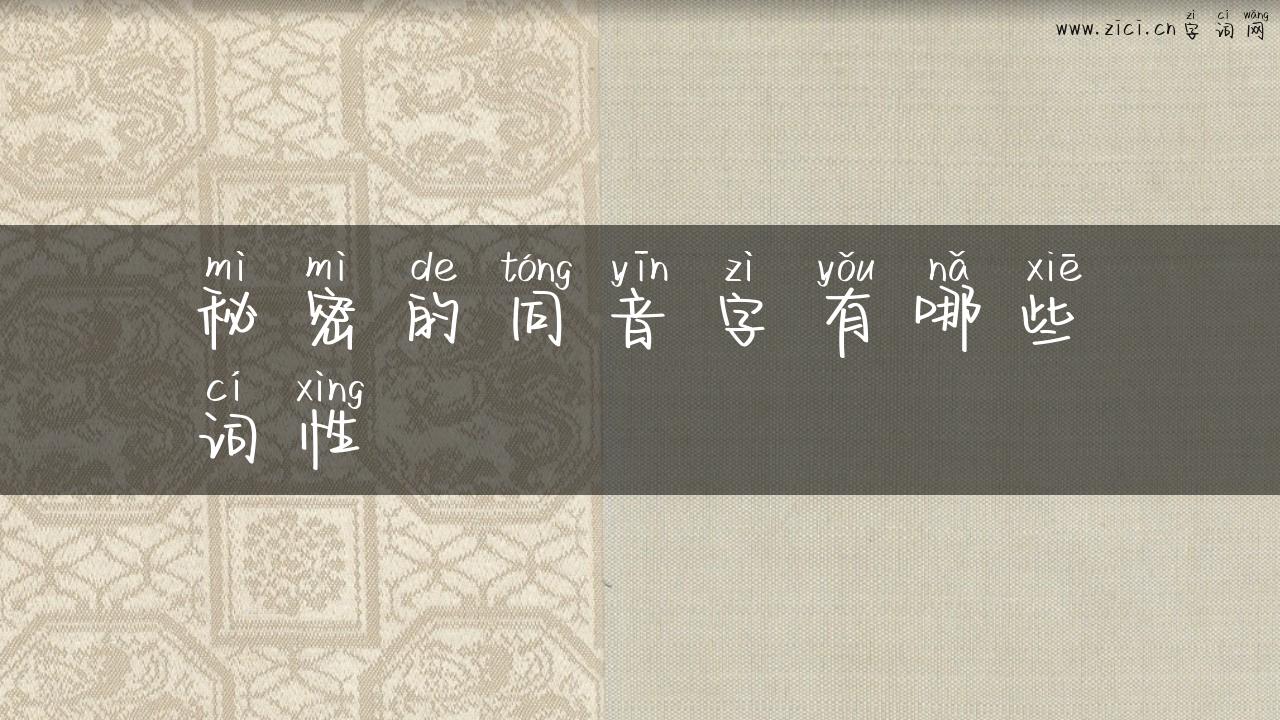 zì cí wǎng
www.zici.cn 字词网
mì mì de tóng yīn zì yǒu nǎ xiē
秘密的同音字有哪些
cí xìng
词性